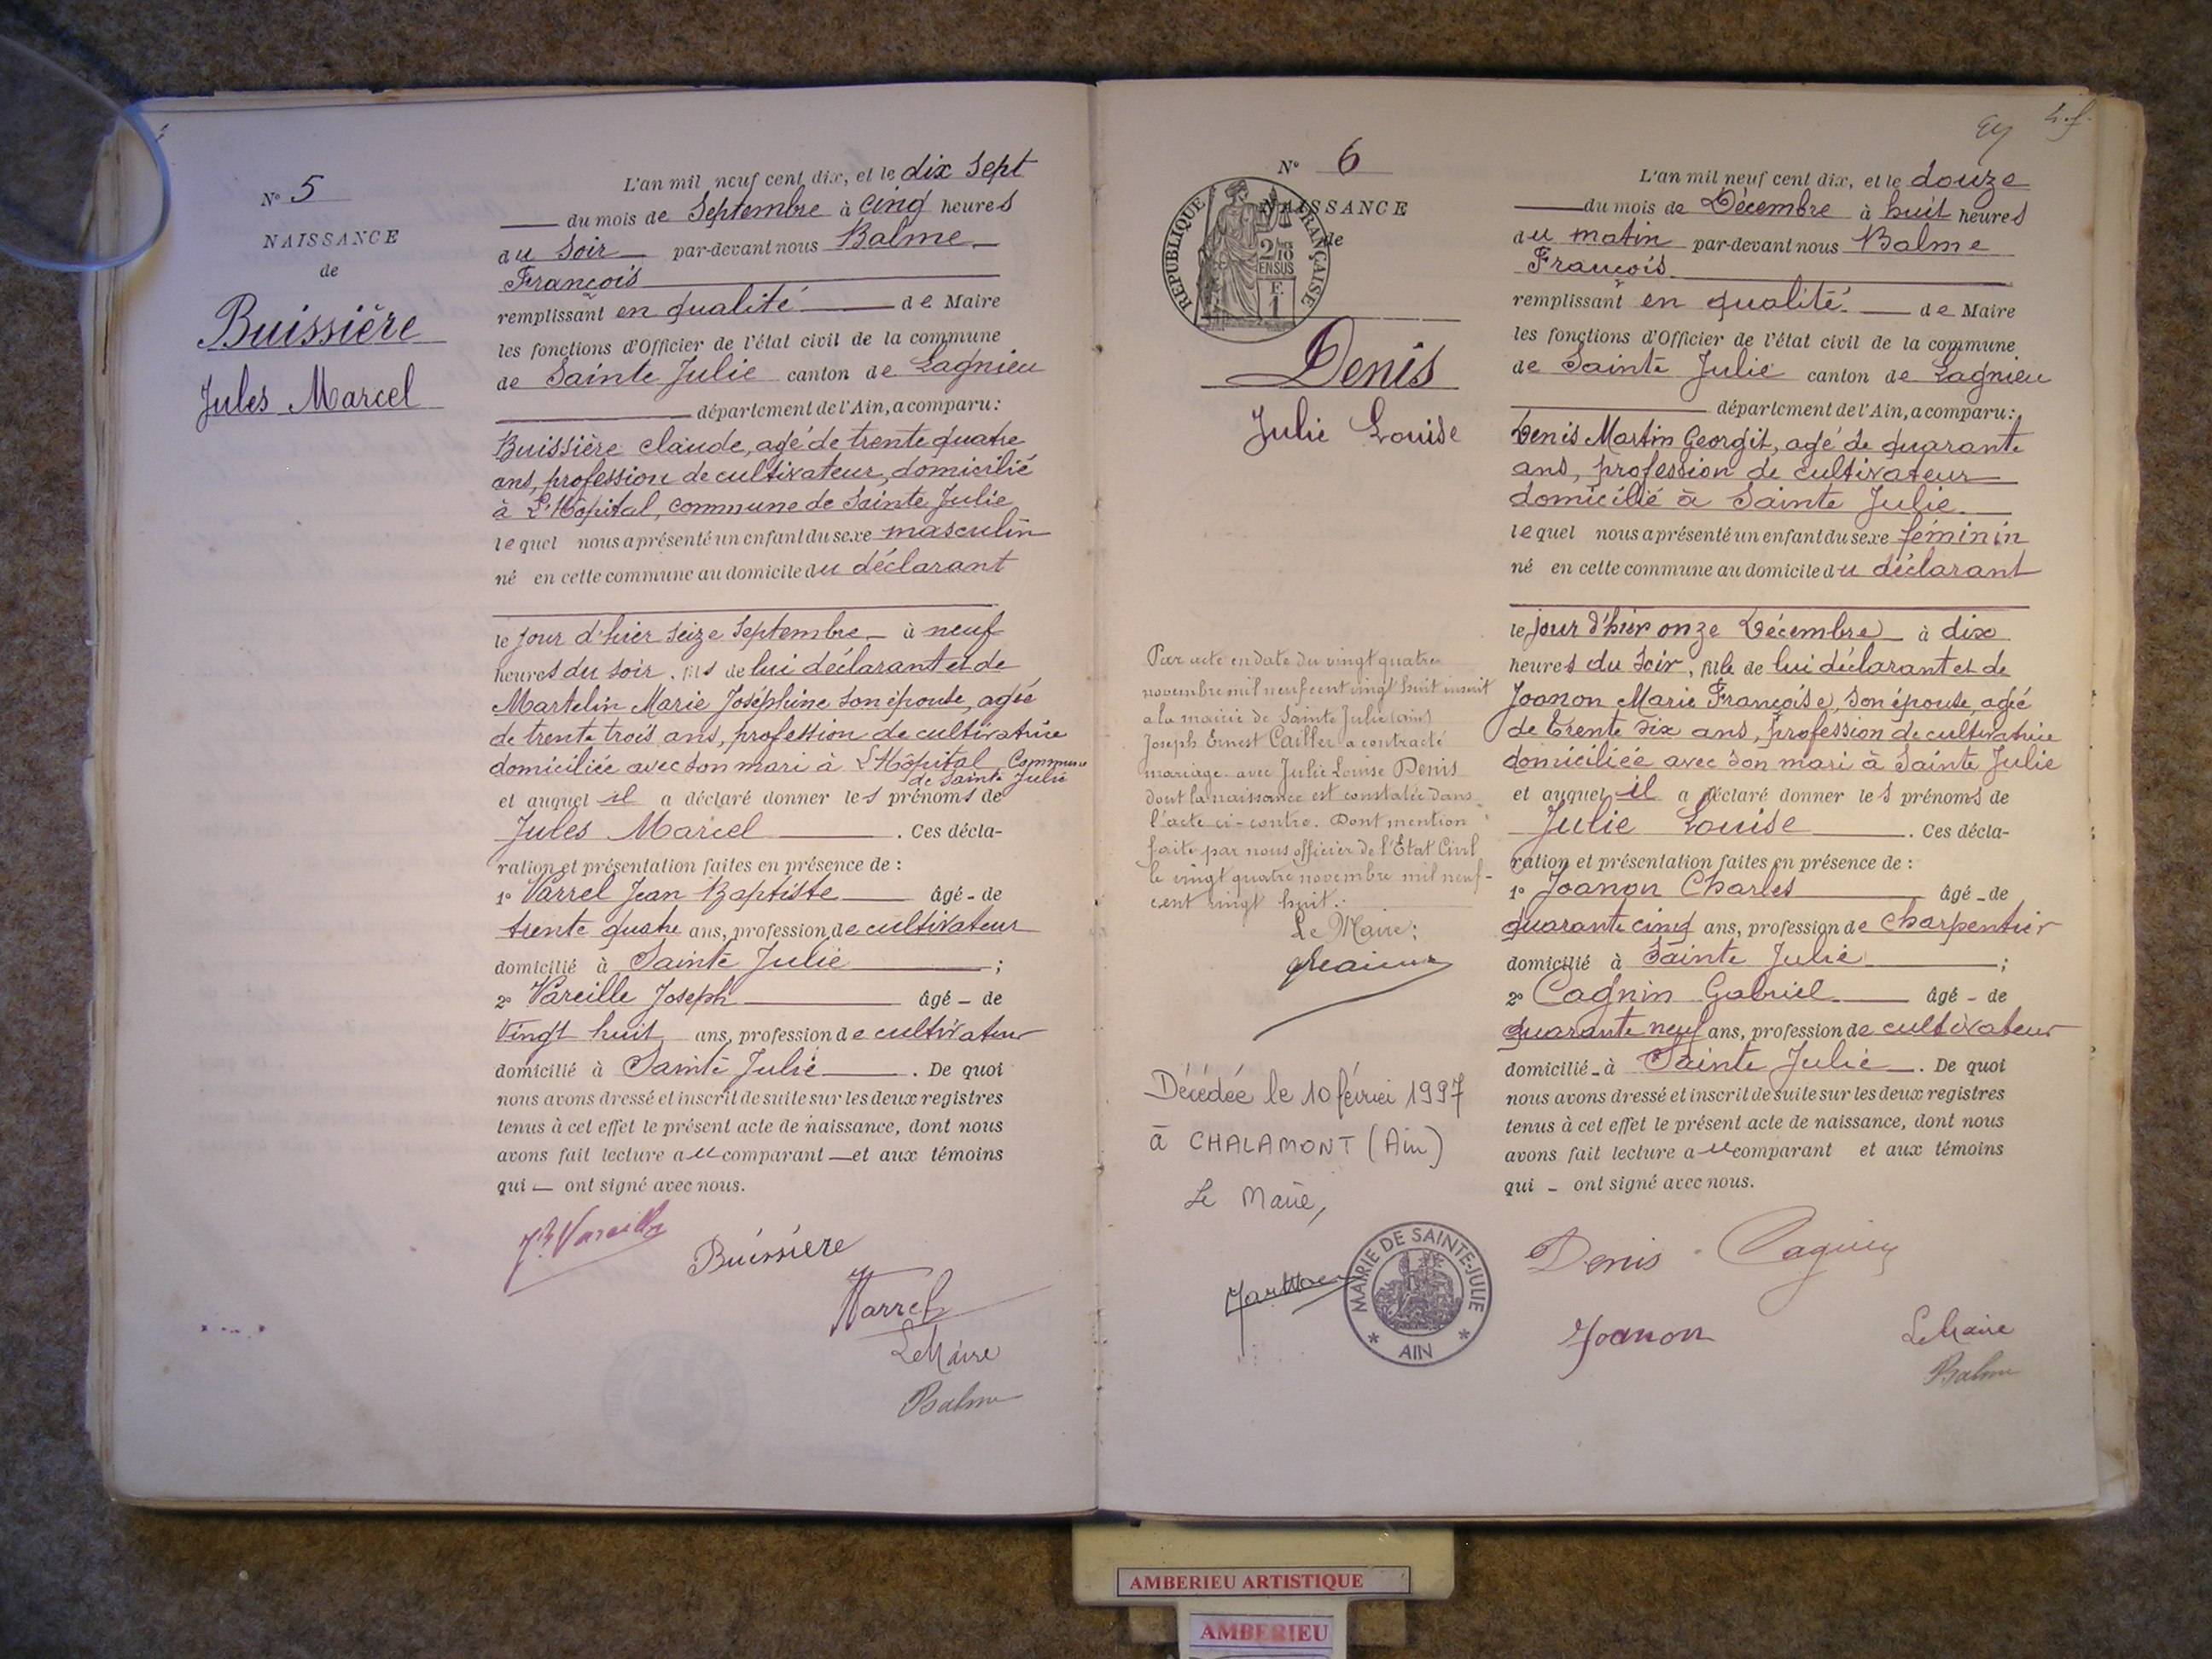 N° 5
NAISSANCE
de
Buissière
Jules Marcel
L'an mil neuf cent dix, et le dix sept
du mois de Septembre à cinq heures
du soir par-devant nous Balme
François
remplissant en qualité de Maire
les fonctions d'Officier de l'état civil de la commune
de Sainte Julie canton de Lagnieu
département de l'Ain, a comparu :
Buissière claude, agé de trente quatre
ans, profession de cultivateur, domicilié
à L'Hôpital, commune de Sainte Julie
lequel nous a présenté un enfant du sexe masculin
né en cette commune au domicile du déclarant
le jour d'hier seize Septembre à neuf
heures du soir, fils de lui déclarant et de
Martelin Marie Joséphine son épouse, agée
de trente trois ans, profession de cultivatrice
domiciliée avec son mari à L'Hôpital, Commune
de Sainte Julie
et auquel il a déclaré donner les prénoms de
Jules Marcel . Ces décla-
ration et présentation faites en présence de :
1° Varrel Jean Baptiste âgé - de
trente quatre ans, profession de cultivateur
domicilié à Sainte Julie ;
2° Vareille Joseph âgé - de
Vingt huit ans, profession de cultivateur
domicilié à Sainte Julie . De quoi
nous avons dressé et inscrit de suite sur les deux registres
tenus à cet effet le présent acte de naissance, dont nous
avons fait lecture au comparant et aux témoins
qui ont signé avec nous.
Vareille
Buissiere
Varrel
Le Maire
Balme
N° 6
NAISSANCE
de
REPUBLIQUE FRANÇAISE
2/10
EN SUS
F.
1
Denis
Julie Louise
Par acte en date du vingt quatre
novembre mil neuf cent vingt huit inscrit
a la mairie de Sainte Julie (ain)
Joseph Ernest Cailler a contracté
mariage avec Julie Louise Denis
dont la naissance est constatée dans
l'acte ci-contre. Dont mention
faite par nous officier de l'Etat Civil
le vingt quatre novembre mil neuf-
cent vingt huit.
Le Maire :
Décédée le 10 février 1997
à CHALAMONT (Ain)
Le Maire,
MAIRIE DE SAINTE-JULIE
* AIN *
L'an mil neuf cent dix, et le douze
du mois de Décembre à huit heures
du matin par-devant nous Balme
François
remplissant en qualité de Maire
les fonctions d'Officier de l'état civil de la commune
de Sainte Julie canton de Lagnieu
département de l'Ain, a comparu :
Denis Martin Georgit, agé de quarante
ans, profession de cultivateur
domicilié à Sainte Julie
lequel nous a présenté un enfant du sexe féminin
né en cette commune au domicile du déclarant
le jour d'hier onze Décembre à dix
heures du soir, fille de lui déclarant et de
Joanon Marie Françoise, son épouse, agée
de trente six ans, profession de cultivatrice
domiciliée avec son mari à Sainte Julie
et auquel il a déclaré donner les prénoms de
Julie Louise . Ces décla-
ration et présentation faites en présence de :
1° Joanon Charles âgé - de
quarante cinq ans, profession de charpentier
domicilié à Sainte Julie ;
2° Cagnin Gabriel âgé - de
quarante neuf ans, profession de cultivateur
domicilié - à Sainte Julie . De quoi
nous avons dressé et inscrit de suite sur les deux registres
tenus à cet effet le présent acte de naissance, dont nous
avons fait lecture au comparant et aux témoins
qui - ont signé avec nous.
Denis Cagnin
Joanon
Le Maire
Balme
AMBERIEU ARTISTIQUE
AMBERIEU